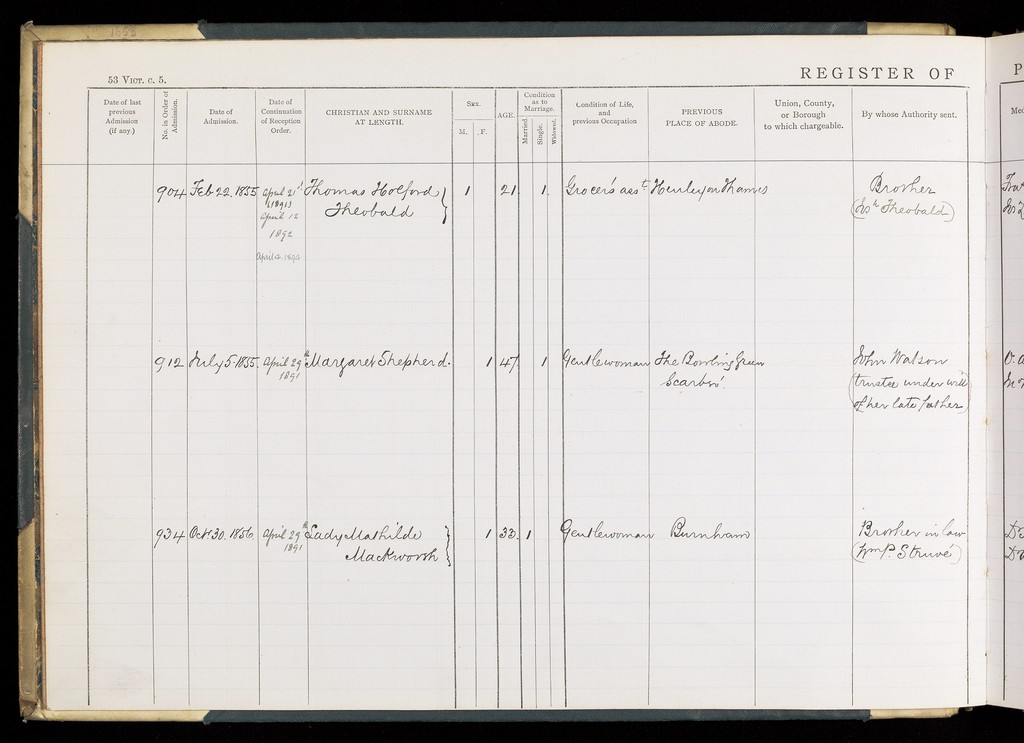 53 VICT. c. 5.
REGISTER OF
Date of last previous Admission (if any.)
No. in Order of Admission.
Date of Admission.
Date of Continuation of Reception Order.
CHRISTIAN AND SURNAME AT LENGTH.
SEX.
M. F.
AGE.
Condition as to Marriage.
Married. Single. Widowed.
Condition of Life, and previous Occupation
PREVIOUS PLACE OF ABODE.
Union, County, or Borough to which chargeable.
By whose Authority sent.
904 Feb 22. 1855 April 21st Thomas Holford 1 21 1. Grocers asst Henley on Thames Brother
(1891) Theobald (Jos h Theobald)
April 12
1892
April 4. 1894
912 July 5. 1855 April 29th Margaret Shepherd. 1 47 1 Gentlewoman The Bowling Green John Watson
1891 Scarbro'. (trustee under will
of her late father)
934 Octr 30. 1856. April 29th Lady Mathilde 1 33. 1 Gentlewoman Burnham Brother in law
1891 Mackworth (Wm P. Struvé)